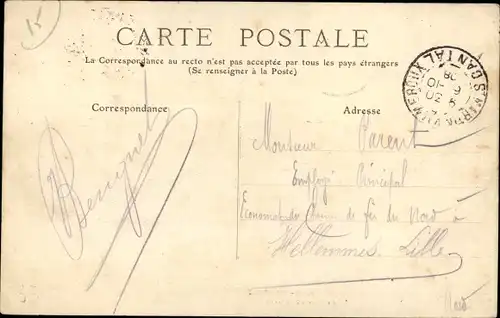 15
CARTE POSTALE
La Correspondance au recto n'est pas acceptée par tous les pays étrangers
(Se renseigner à la Poste)
Correspondance
Adresse
CANTAL
Monsieur Parent
Employé Principal
Economat du Chemin de fer du Nord à
Hellemmes. Lille
Nord